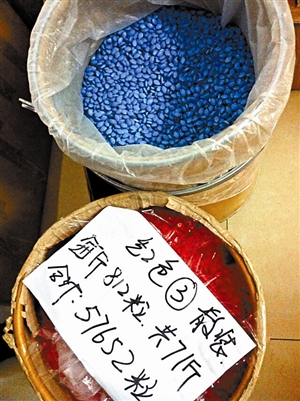 红色③ 散装
每斤812粒.共71斤
合计:57652粒